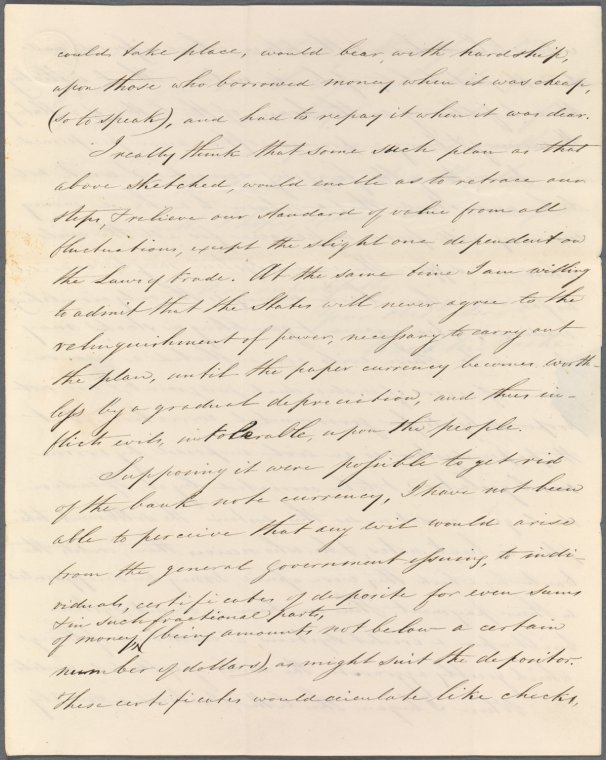 could take place, would bear, with hardship,
upon those who borrowed money when it was cheap,
(so to speak), and had to repay it when it was dear.
I really think that some such plan as that
above sketched, would enable us to retrace our
steps, & relieve our standard of value from all
fluctuations, except the slight one dependent on
the Laws of trade. At the same time I am willing
to admit that the States will never agree to the
relinquishment of power, necessary to carry out
the plan, until the paper currency becomes worth-
less by a gradual depreciation, and thus in-
flicts evils, intolerable, upon the people.
Supposing it were possible to get rid
of the bank note currency, I have not been
able to perceive that any evil would arise
from the general government issuing, to indi-
viduals, certificates of deposite for even sums
& in such fractional parts,
of money, (being amounts not below a certain
number of dollars), as might suit the depositor.
These certificates would circulate like checks,